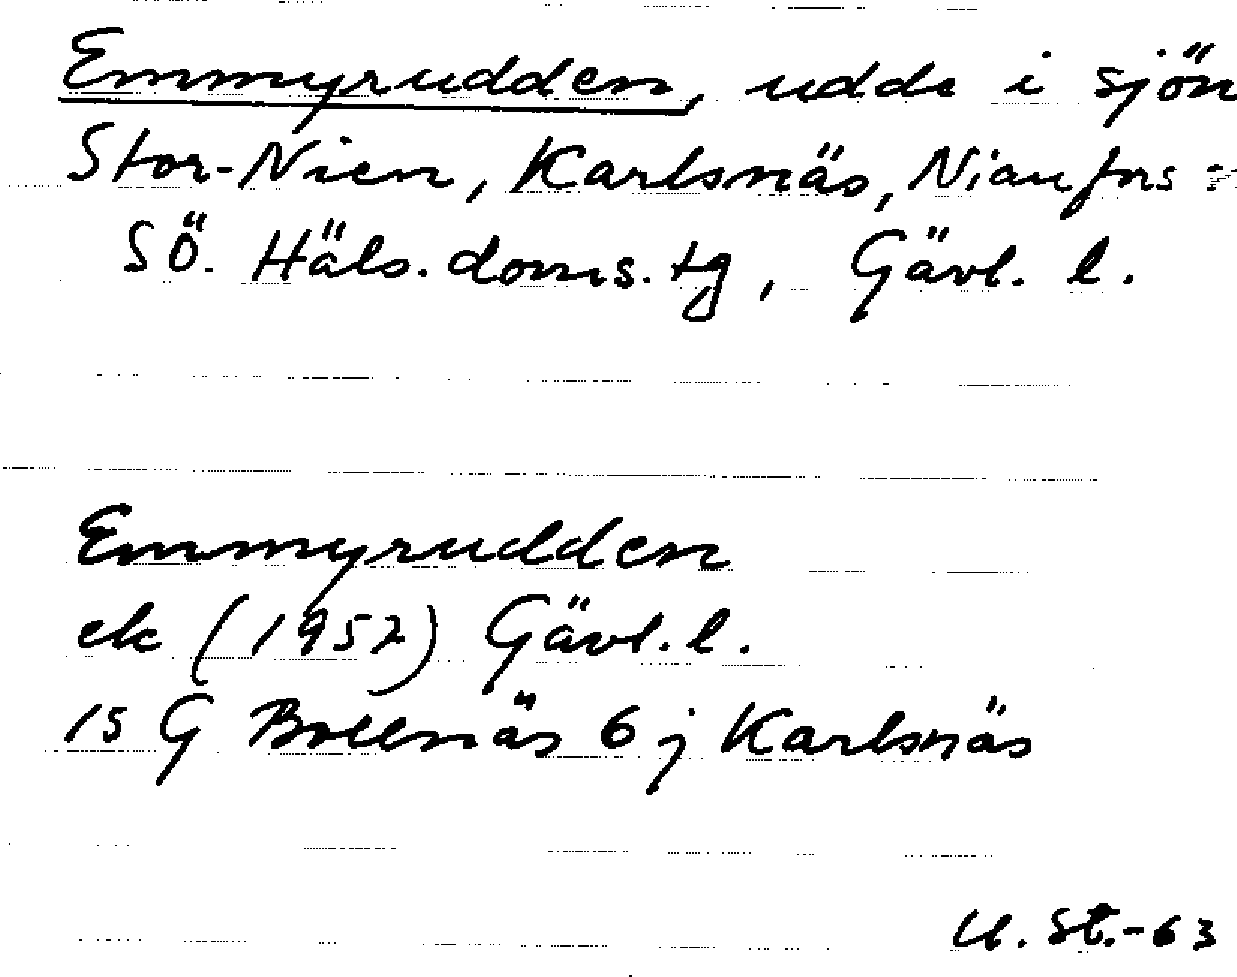 Emmyrudden, udde i sjön
Stor-Nien, Karlsnäs, Nianfors =
SÖ. Häls. doms. tg, Gävl. l.
Emmyrudden
ek (1952) Gävl. l.
15 G Bollnäs 6 j Karlsnäs
U. St.-63